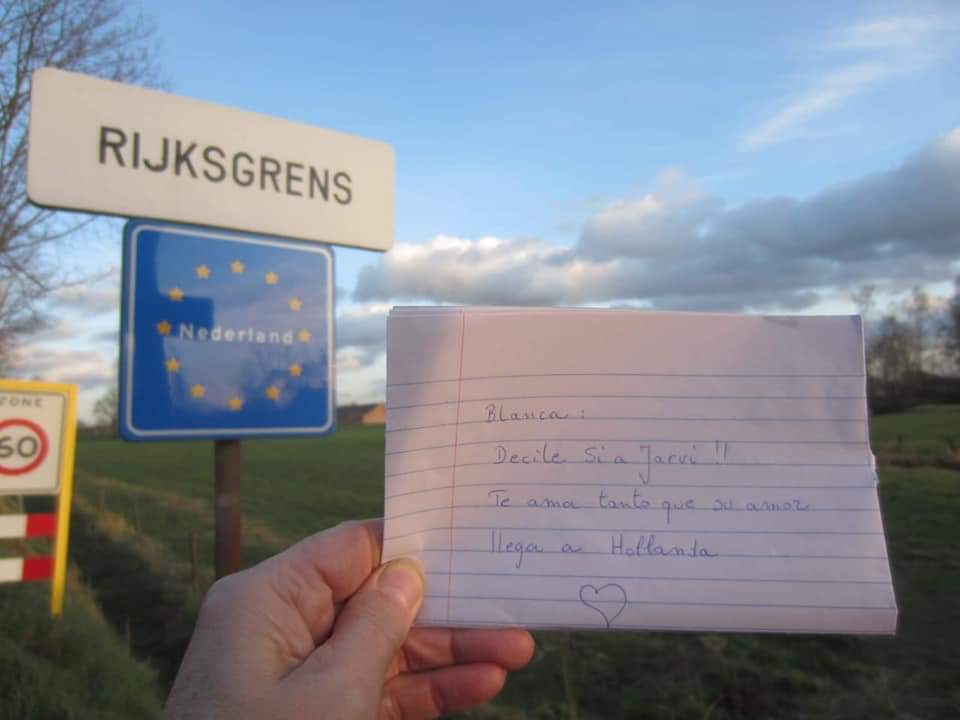 RIJKSGRENS
Nederland
ZONE
60
Blanca:
Decile Si a Javi !!
Te ama tanto que su amor
llega a Hollanda